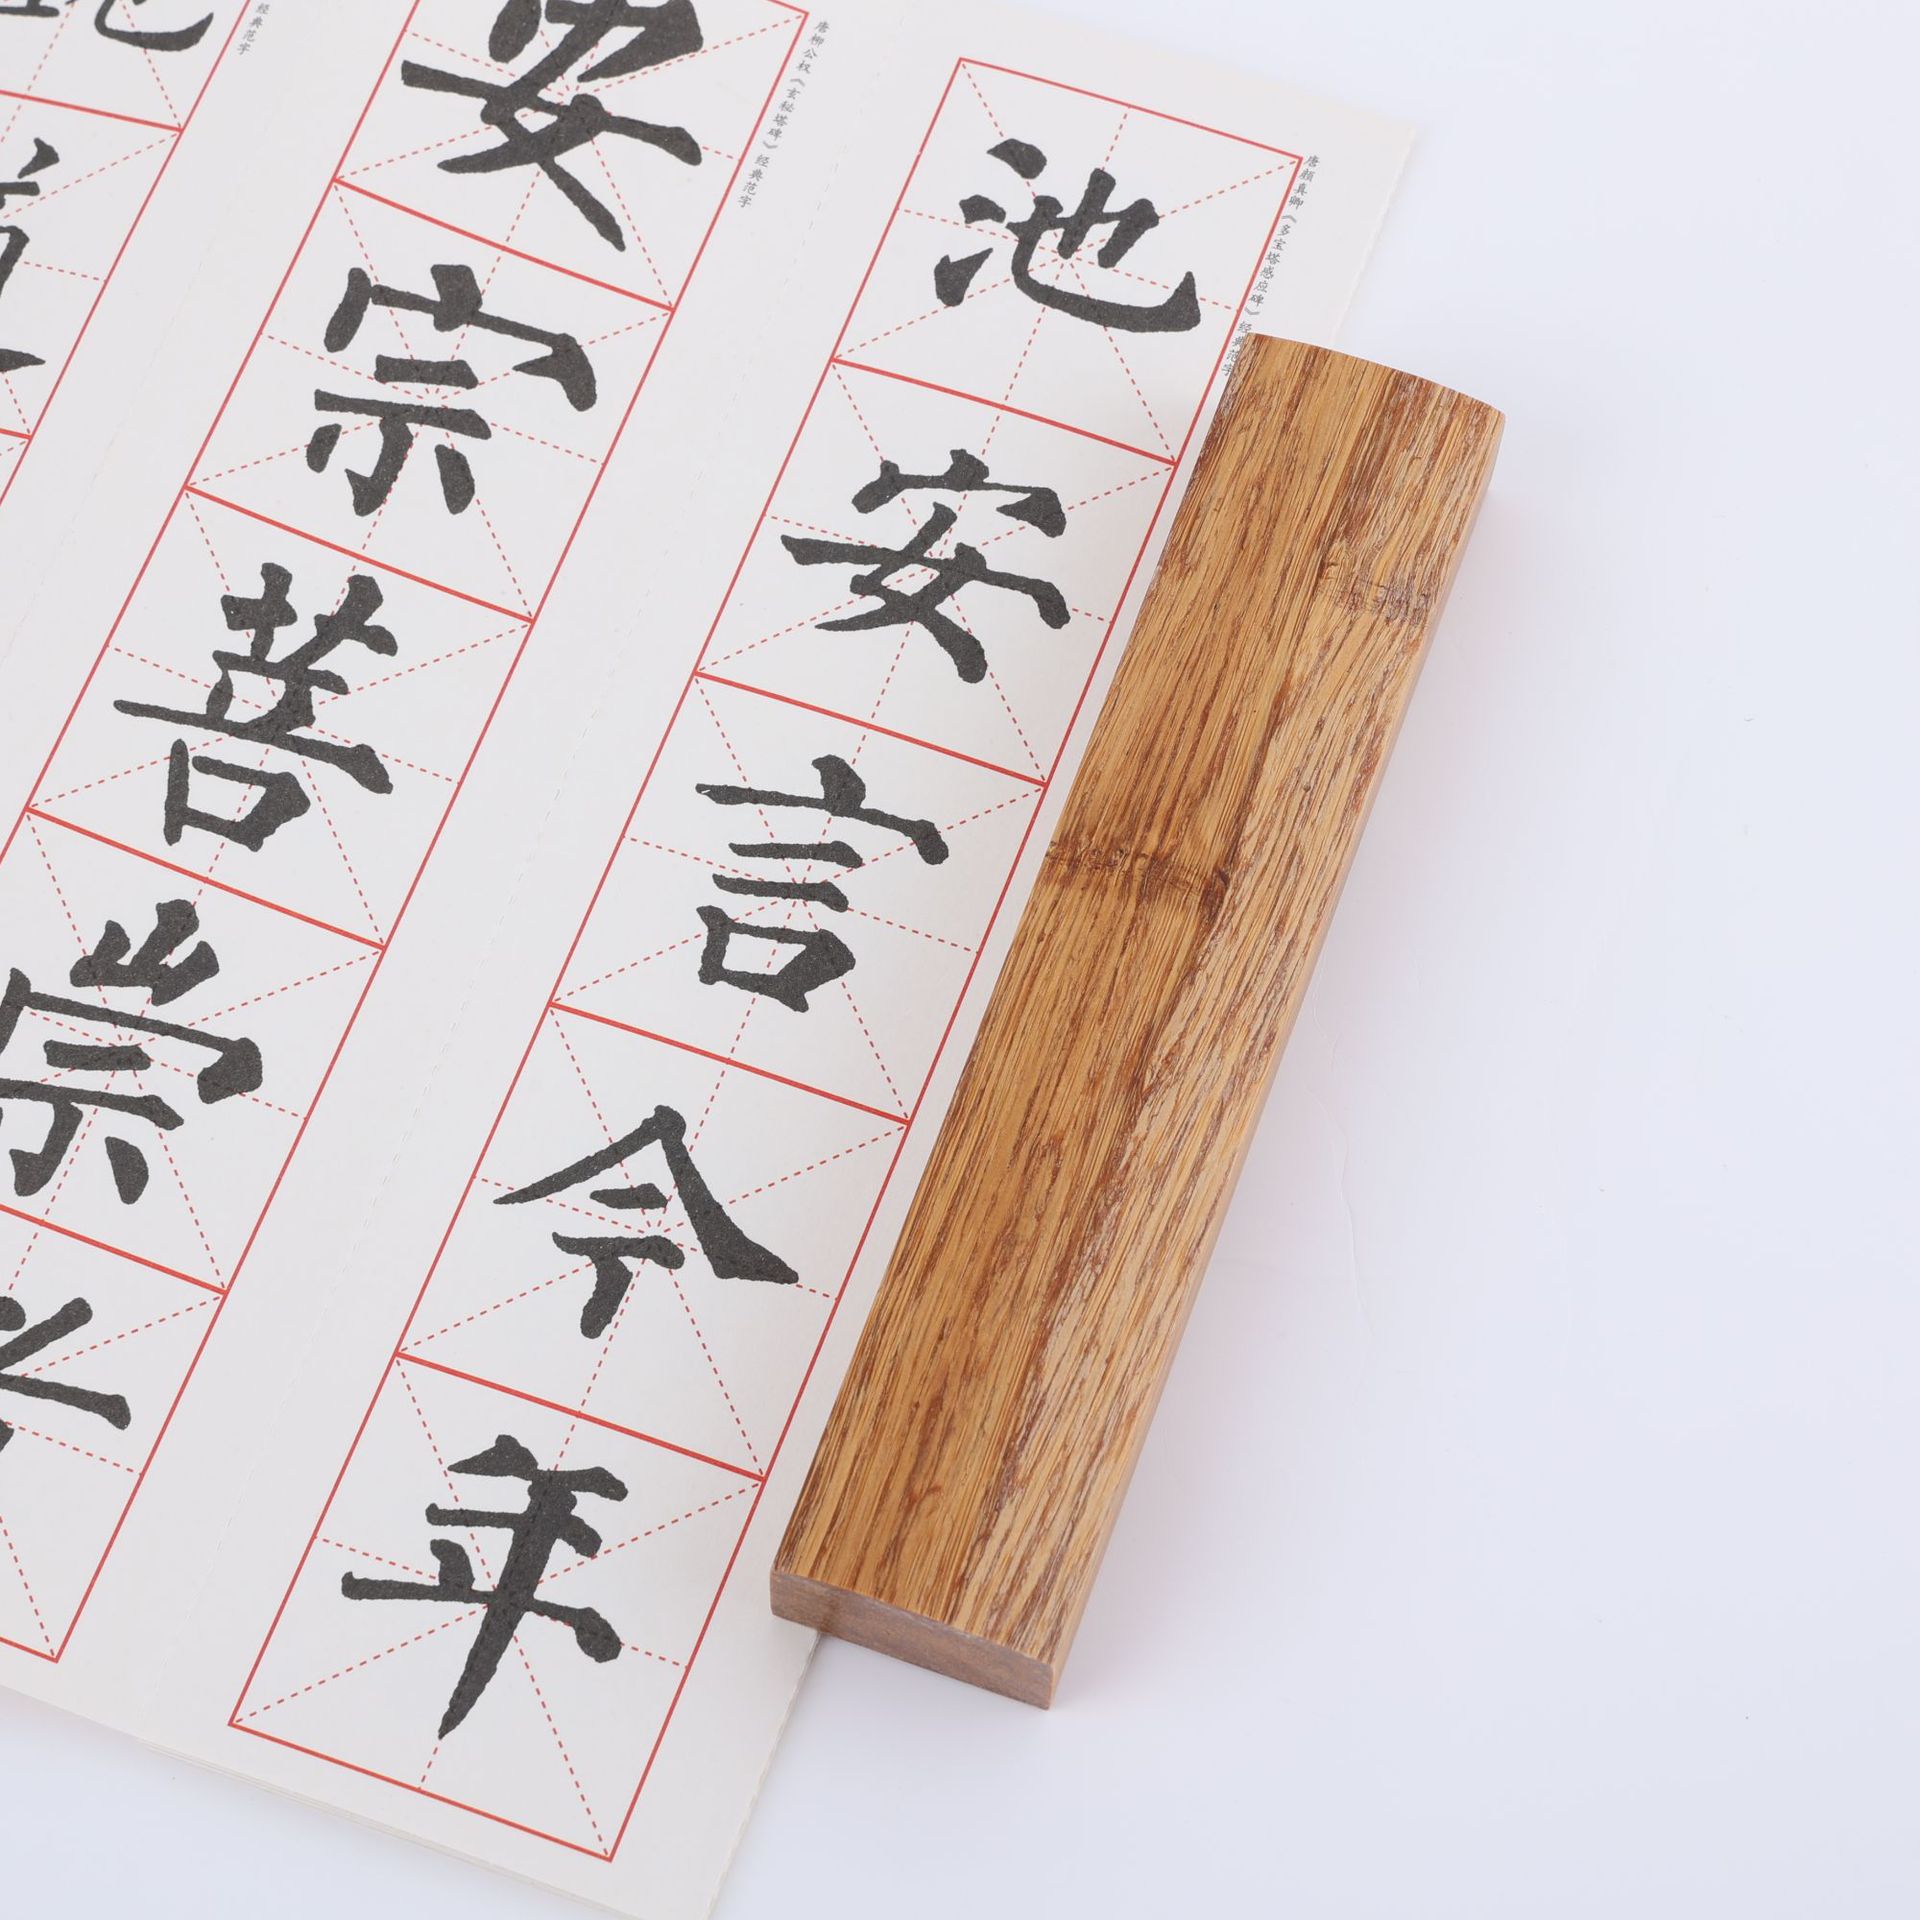 唐颜真卿《多宝塔感应碑》经典范字
池安言今年
唐柳公权《玄秘塔碑》经典范字
安宗菩崇
经典范字